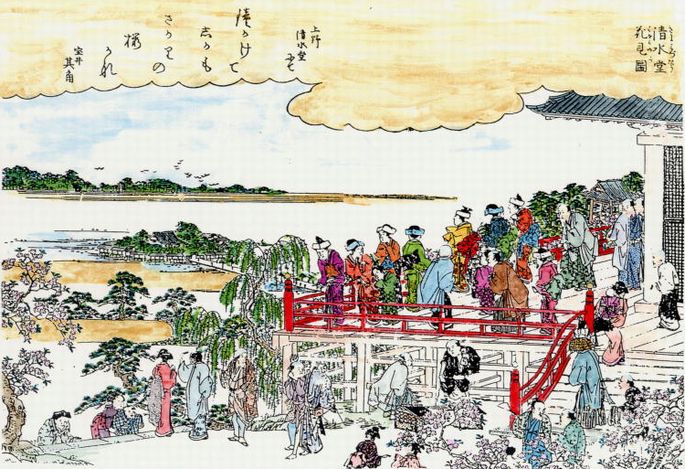 清水堂
花見図
上野
清水堂にて
鐘かけて
しかも
さかりの
桜
かな
宝井
其角